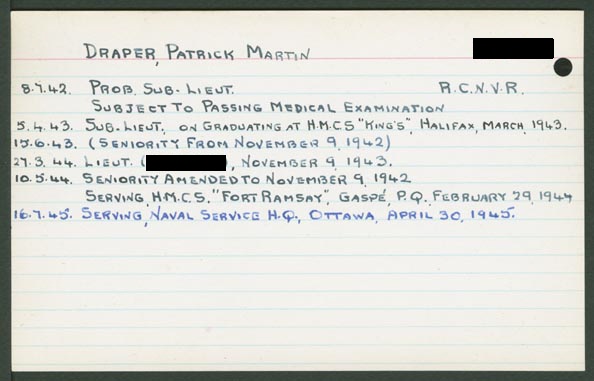 DRAPER, PATRICK MARTIN
8.7.42. PROB. SUB-LIEUT. R.C.N.V.R.
SUBJECT TO PASSING MEDICAL EXAMINATION
5.4.43. SUB-LIEUT. ON GRADUATING AT H.M.C.S "KING'S", HALIFAX, MARCH, 1943.
15.6.43. (SENIORITY FROM NOVEMBER 9, 1942)
27.3.44. LIEUT. ( ), NOVEMBER 9, 1943.
10.5.44. SENIORITY AMENDED TO NOVEMBER 9, 1942
SERVING, H.M.C.S. "FORT RAMSAY", GASPÉ, P.Q. FEBRUARY 29, 1944
16.7.45. SERVING, NAVAL SERVICE H.Q., OTTAWA, APRIL 30, 1945.